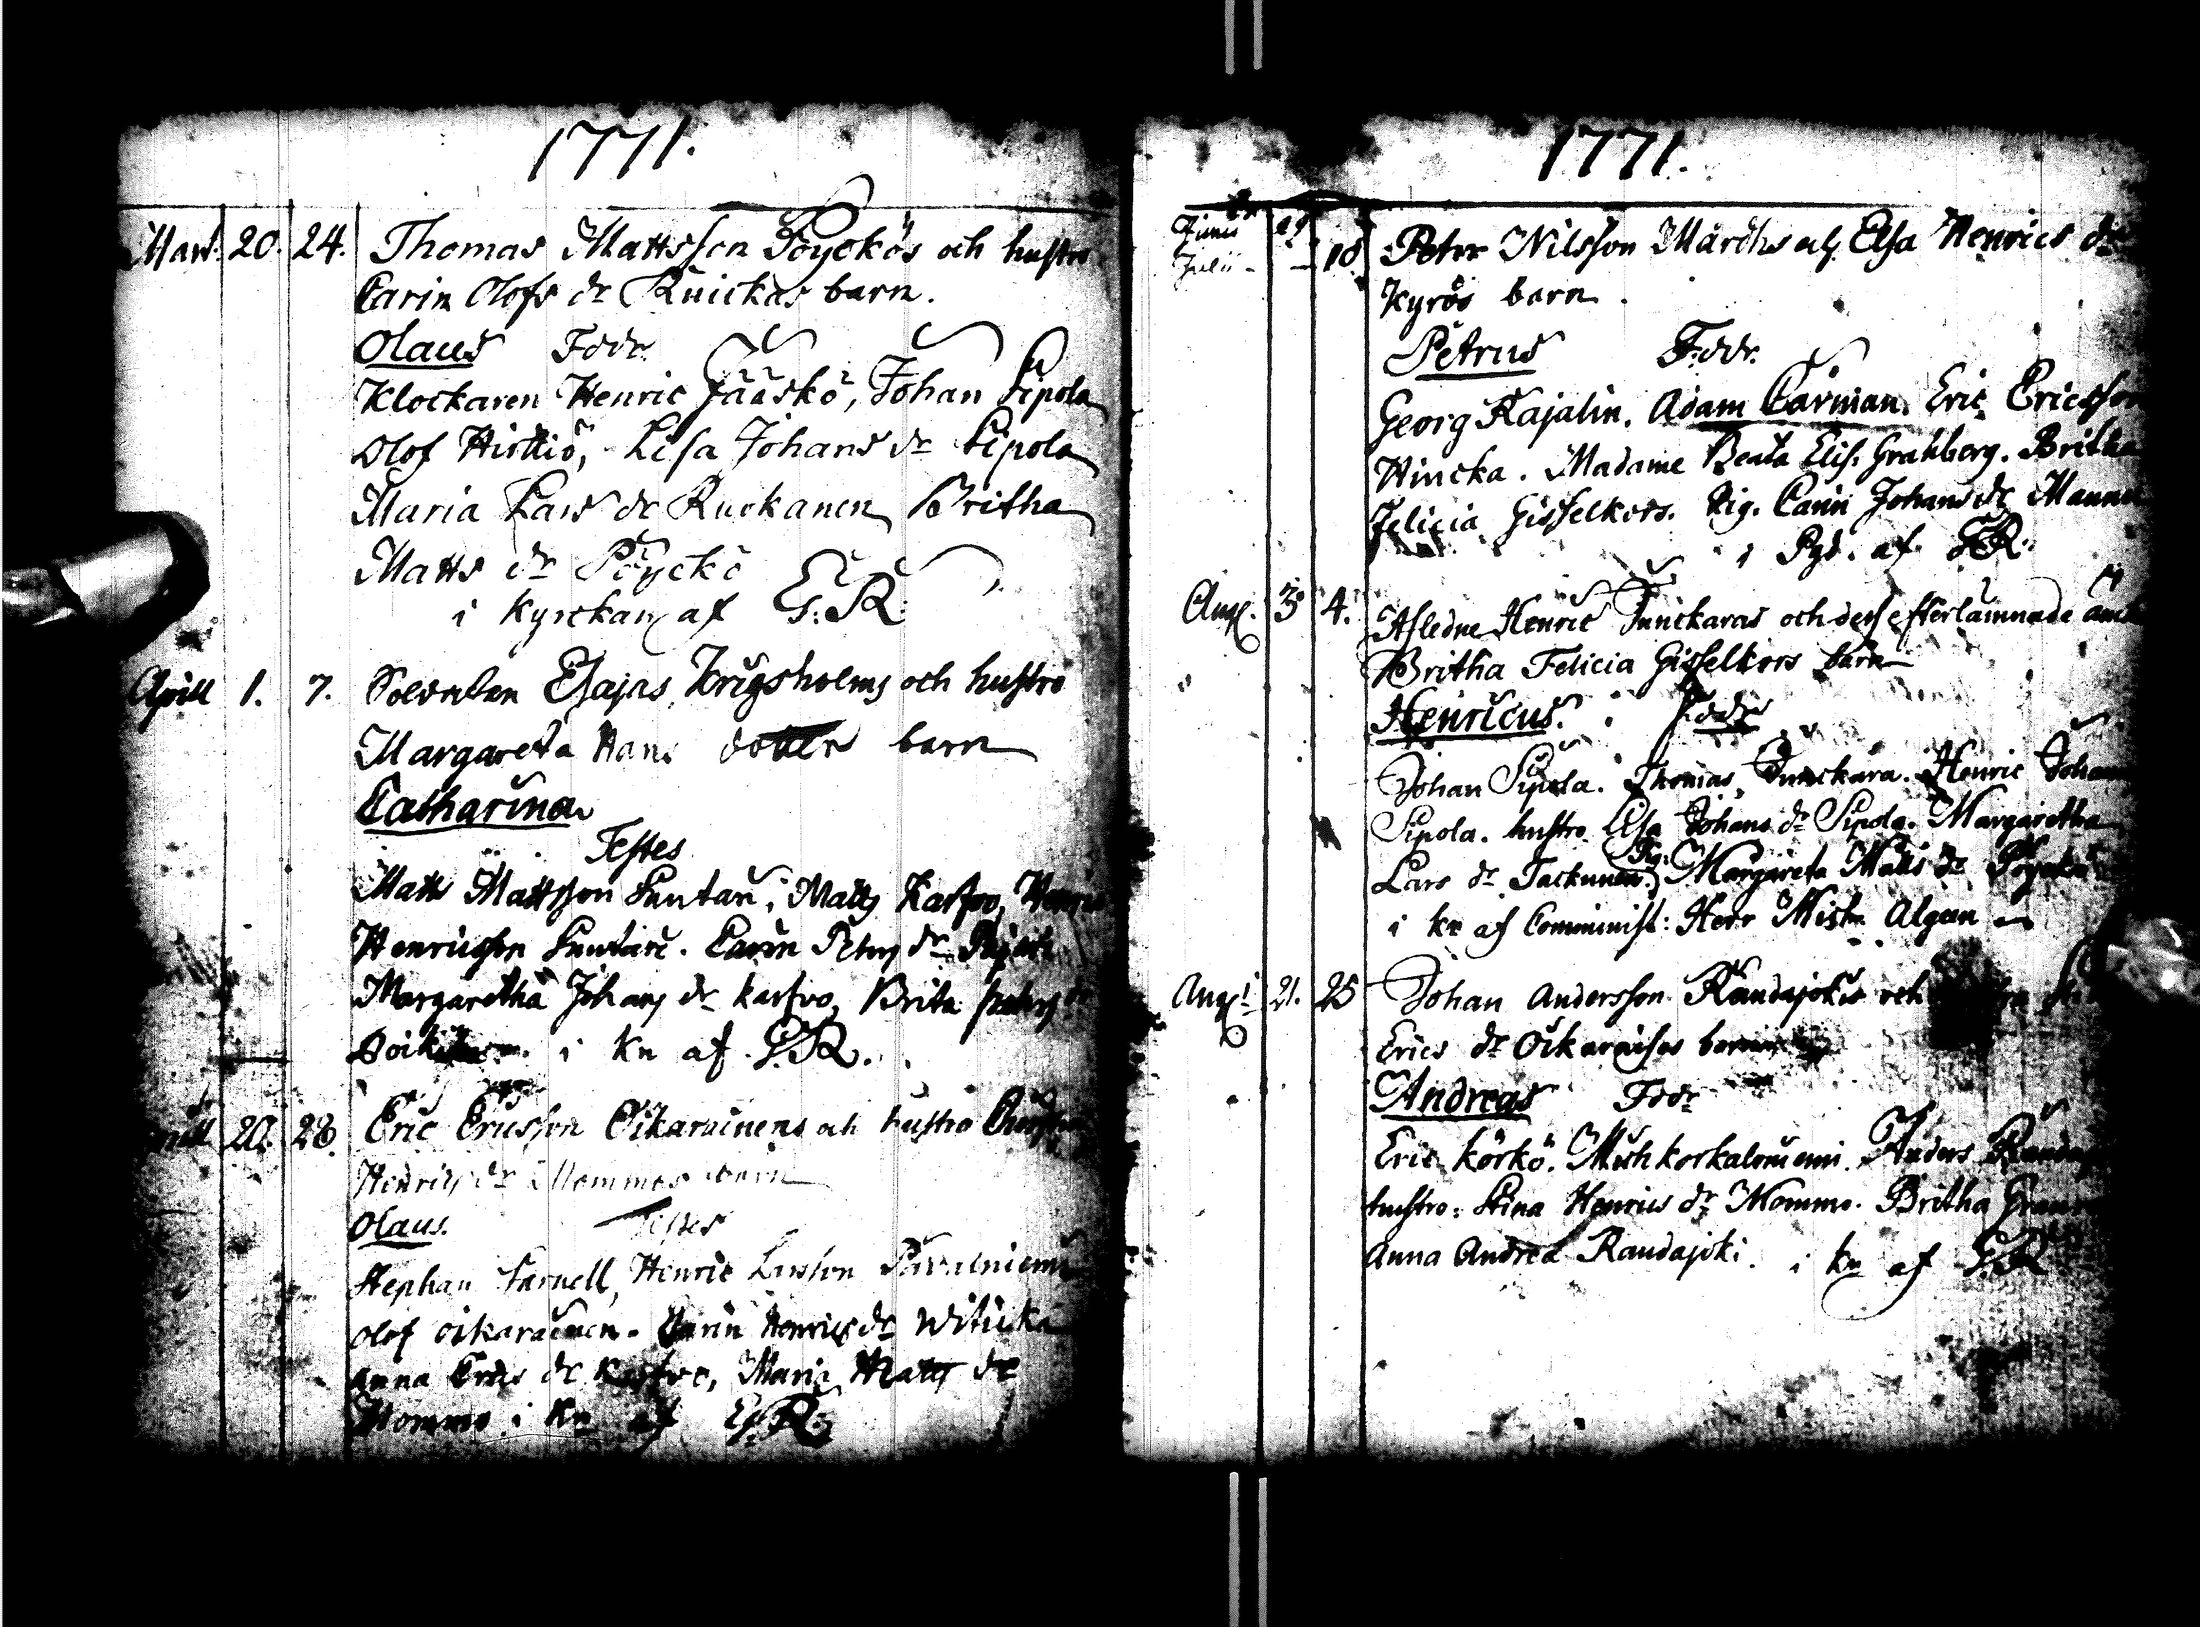 1771.
Mart. 20. 24. Thomas Mattsson Pöyckös och hustro
Carin Olofs dr Kuickas barn.
Olaus Fddr.
Klockaren Henric Jääskö, Johan Sipola
Olof Hirttiö, Lisa Johans dr Sipola
Maria Lars dr Ruokanen, Britha
Matts dr Pöyckö
i Kyrckan af G:R:
Aprill 1. 7. Soldaten Esajas Krigsholms och hustro
Margareta Hans dotter barn
Catharina
Testes
Matts Mattsson Luntari, Matts Karfvo,
Henricsson Luntari. Carin Peters dr
Margaretha Johans dr Karfvo, Brita
i Kn af G.R.
20. 28. Eric Ericsson Oikarainens och hustro
Henrics dr Mommos barn
Olaus. Testes
Stephan Farnell, Henric Larsson
Olof Oikarainen. Carin Henrics dr
Anna Erics dr Karfvo, Maria Matts dr
Mommo i Kn af G.R:
1771.
Junii 29
Julii - - 18 Peter Nilsson Märchs och Elsa Henrics dr
Kyrös barn.
Petrus Fddr.
Georg Kajalin. Adam Carman. Eric Ericsson
Hincka. Madame Beata Elis. Grahberg. Britha
Felicia Gisselkors. Pig. Carin Johans dr
i Pgd. af G:R:
Aug. 3 4. Afledne Henric Junckaras och dess efterlämnade
Britha Felicia Gisselkors barn
Henricus. Fddr
Johan Sipola. Thomas Junckara. Henric Johan
Sipola. hustro Lisa Johans dr Sipola. Margaretha
Lars dr Tackunen. Pig: Margareta Matts dr Pöyckö
i kn af Comminist: Herr Algren
Augi 21. 25 Johan Andersson Raudajokis och
Erics dr Oikaraises barn
Andreas Fddr
Eric Körkö. Mich Korkaloniemi. Anders
hustro: Stina Henrics dr Mommo. Britha
Anna Andreæ Raudajoki. i kn af G.R